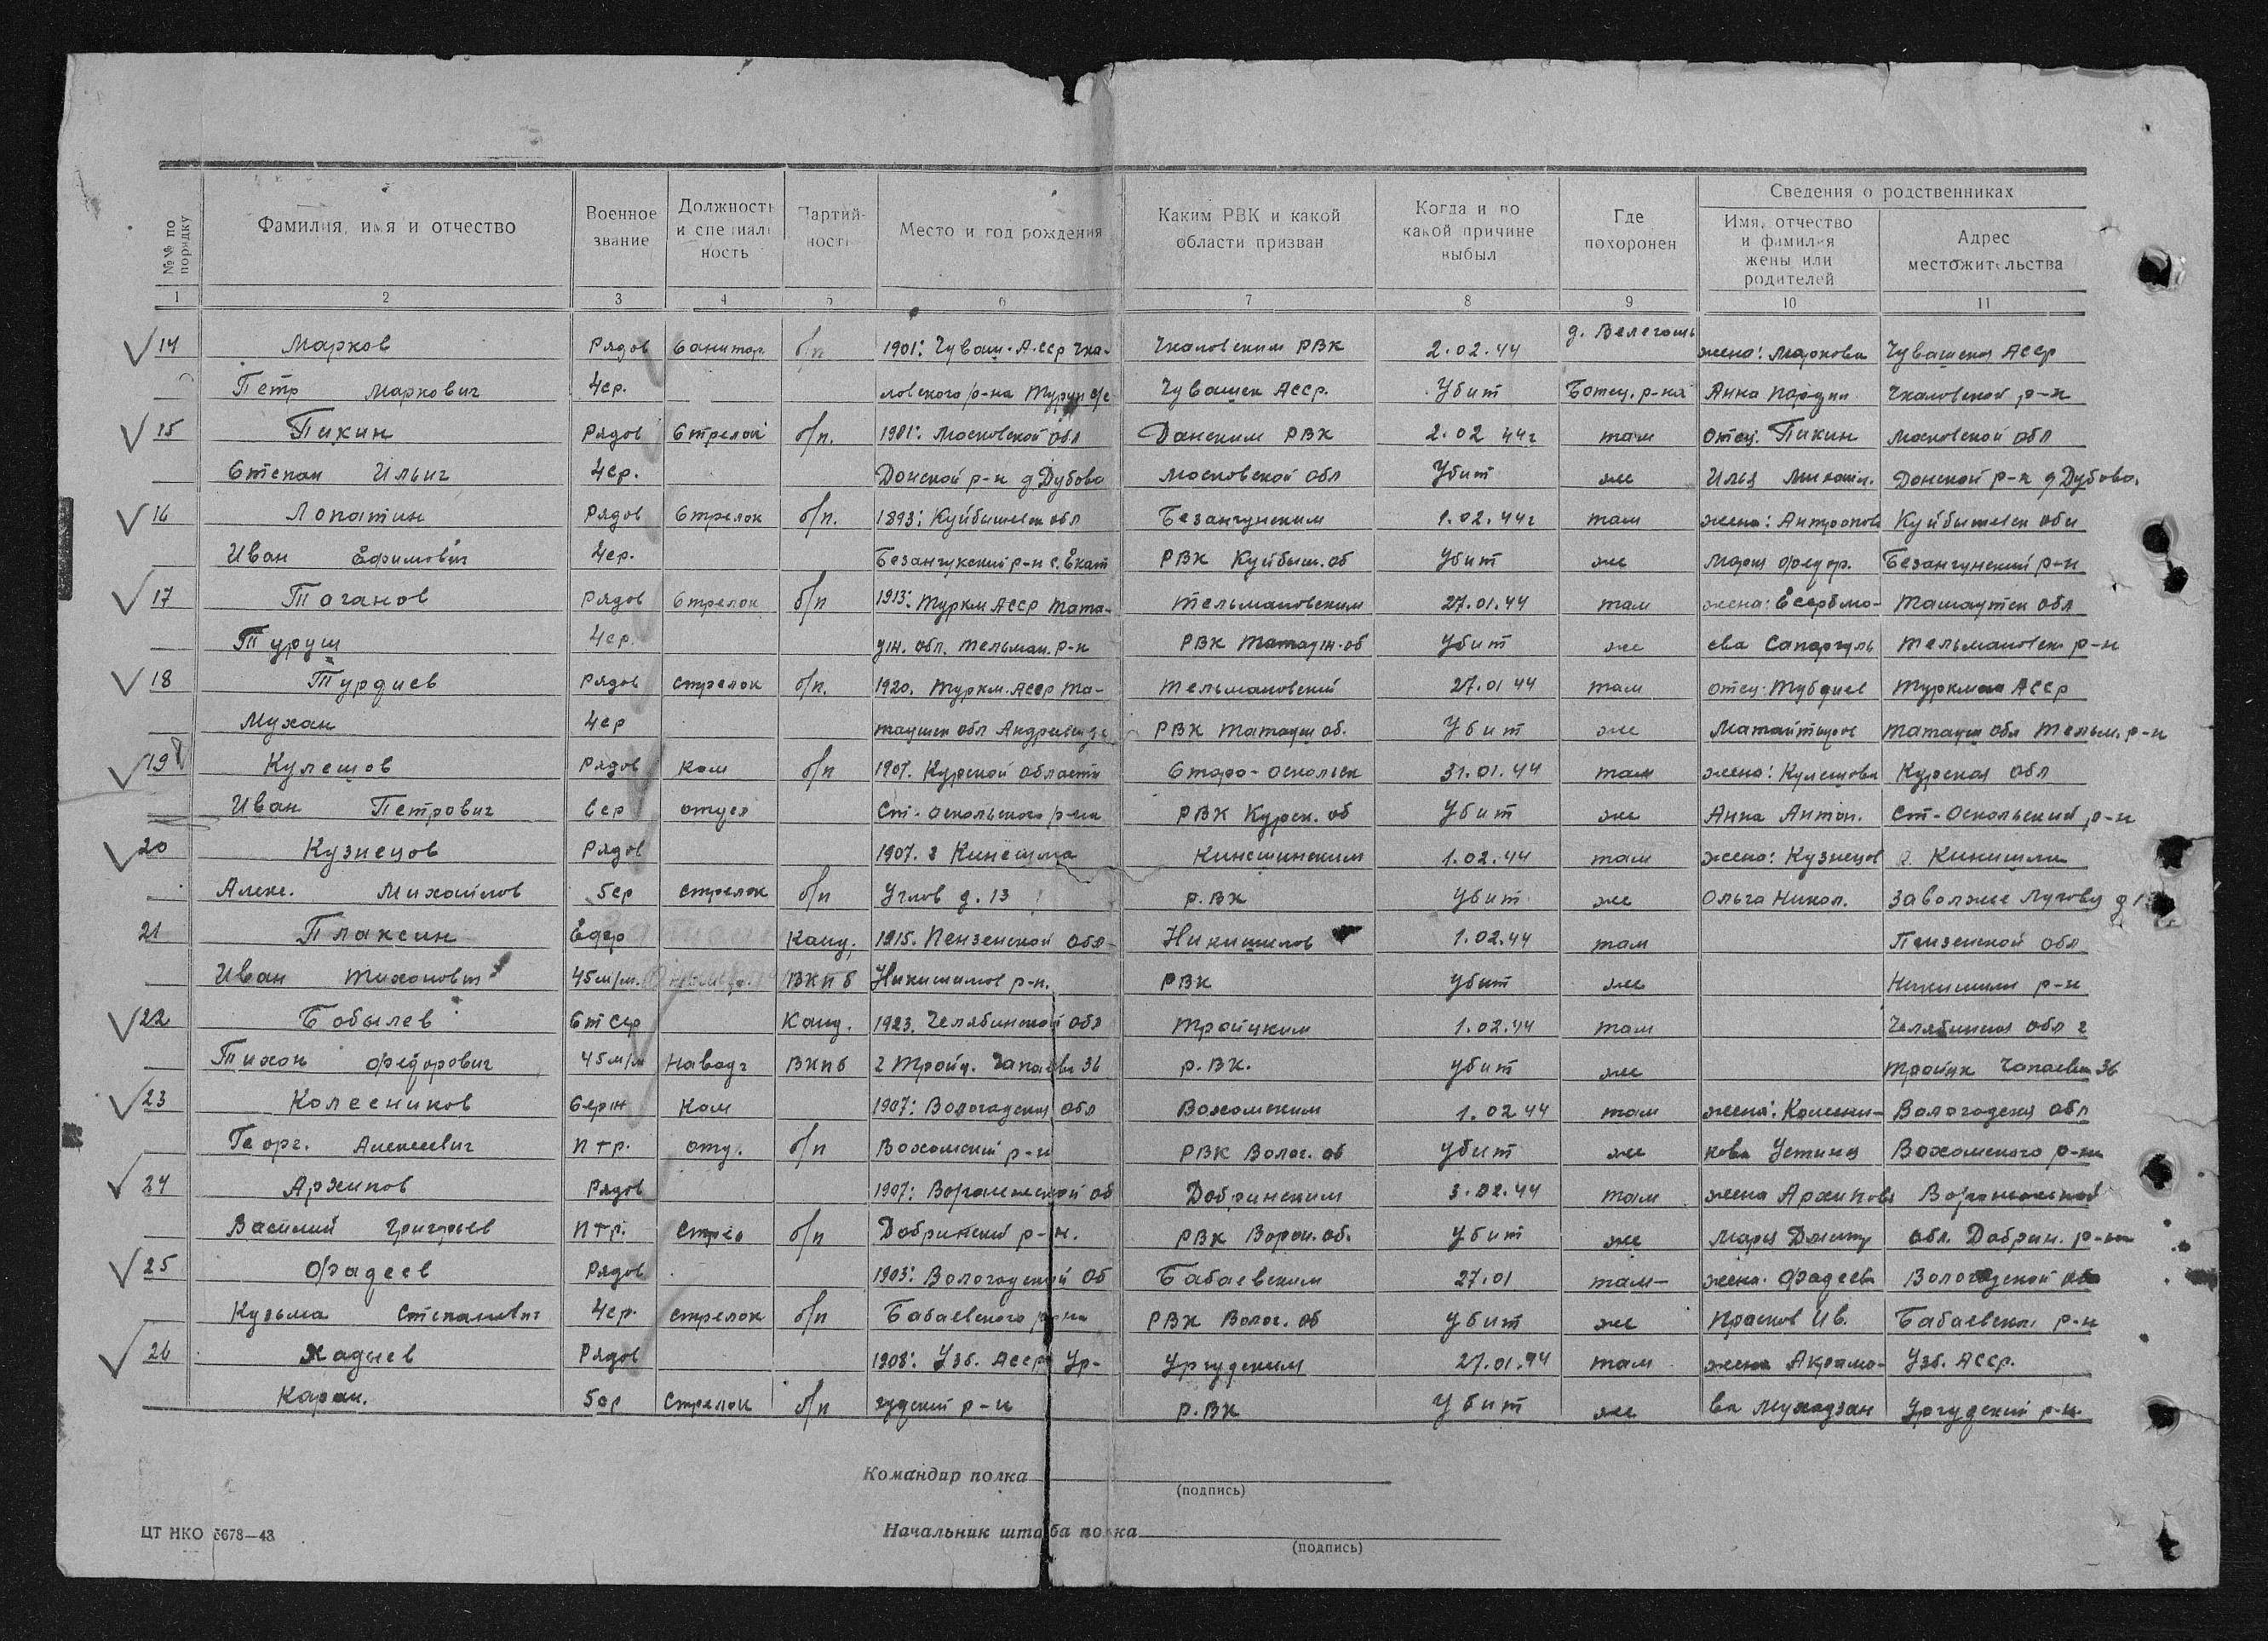 №№ по порядку Фамилия, имя и отчество Военное звание Должность и специальность Партийность Место и год рождения Каким РВК и какой области призван Когда и по какой причине выбыл Где похоронен Сведения о родственниках
Имя, отчество и фамилия жены или родителей Адрес местожительства
1 2 3 4 5 6 7 8 9 10 11
14 Марков Рядов Санитар б/п 1901: Чуваш. АССР Чка- Чкаловским РВК 2.02.44 д. Велегощь жена: Маркова Чувашская АССР
Петр Маркович 4ср. ловского р-на Чувашск АССР. Убит Батец. р-на Анна Чкаловской р-н
15 Пикин Рядов Стрелок б/п. 1901: Московской обл Донским РВК 2.02 44г там отец. Пикин Московской обл
Степан Ильич 4ср. Донской р-н д Дубово Московской обл Убит же Илья Донской р-н д Дубово.
16 Лопатин Рядов Стрелок б/п. 1893: Куйбышевск обл Безанчукским 1.02.44г там жена: Куйбышевск обл
Иван Ефимович 4ср. Безанчукский р-н с. Екат РВК Куйбыш. об Убит же Мария Федор. Безанчукский р-н
17 Таганов Рядов Стрелок б/п 1913: Туркм АССР Таша- Тельмановским 27.01.44 там жена: обл
Туруш 4ср. обл. Тельман. р-н РВК Убит же ева Сапаргуль Тельмановск р-н
18 Турдиев Рядов стрелок б/п. 1920. Туркм. АССР Та- Тельмановский 27.01 44 там отец: Туркман АССР
Мухан 4ср обл РВК об. Убит же обл Тельм. р-н
19 Кулешов Рядов Ком б/п 1907. Курской области Старо-оскольск 31.01.44 там жена: Кулешова Курская обл
Иван Петрович 6ср отдел Ст-оскольского р-на РВК Курск. об Убит же Анна Антон. Ст-Оскольский р-н
20 Кузнецов Рядов 1907. г Кинешма Кинешминским 1.02.44 там жена: Кузнецов г. Кинешма
Алекс. Михайлов 5ср стрелок б/п д. 13 р.ВК Убит же Ольга Никол. Заволжье Лугова д 13
21 Плаксин Ефр Канд. 1915. Пензенской обл- Никишилов 1.02.44 там Пензенской обл
Иван Тихонович 45м/м. ВКПб р-н. РВК Убит же р-н
22 Бобылев Ст Сер Канд. 1923. Челябинской обл Троицким 1.02.44 там Челябинская обл г
Тихон Федорович 45м/м Наводч ВКПб г Троиц. Чапаева 36 р.ВК. Убит же Троицк Чапаева 36
23 Колесников Серж Ком 1907: Вологодская обл Вохомским 1.02 44 там жена: Колесни- Вологодская обл
Георг. Алексеевич ПТР. отд. б/п Вохомский р-н РВК Волог. об Убит же кова Устинья Вохомского р-на
24 Архипов Рядов 1907: Воронежской об Добринским 3.02.44 там жена Архипова Воронежской
Василий Григорьев ПТР. Стрел б/п Добринский р-н. РВК Ворон. об. Убит же Мария Дмитр обл. Добрин. р-на
25 Фадеев Рядов 1903: Вологодской об Бабаевским 27.01 там- жена. Фадеева Вологодской об
Кузьма Степанович 4ср. стрелок б/п Бабаевского р-на РВК Волог. об Убит же Прасков Ив. Бабаевской р-н
26 Хадыев Рядов 1908: Узб. АССР Ур- Ургудским 27.01.44 там жена Акрамо- Узб. АССР.
Каран. 5ср Стрелок б/п гудский р-н р.ВК Убит же ва Мухадзан Ургудский р-н.
Командир полка
(подпись)
ЦТ НКО 5678—43
Начальник штаба полка
(подпись)